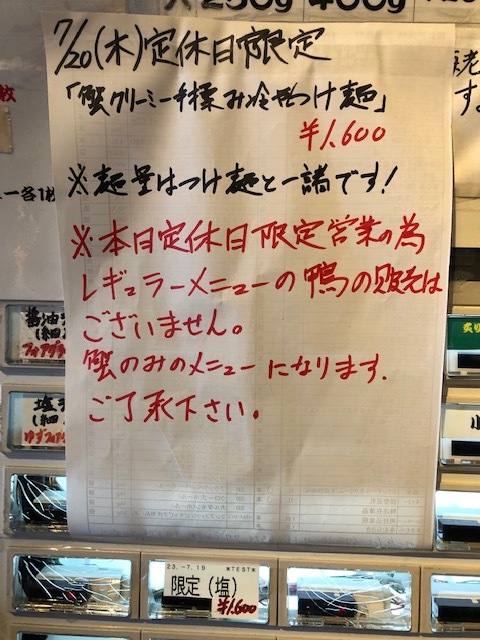 250g 400g
7/20(木)定休日限定
「蟹クリーミー手揉み冷やしつけ麺」
¥1,600
※麺量はつけ麺と一緒です!
※本日定休日限定営業の為
レギュラーメニューの鴨の販売は
ございません。
蟹のみのメニューになります.
ご了承下さい。
醤油
(細
塩
(細
炙り
23.-7.19 *TEST*
限定(塩)
¥1,600